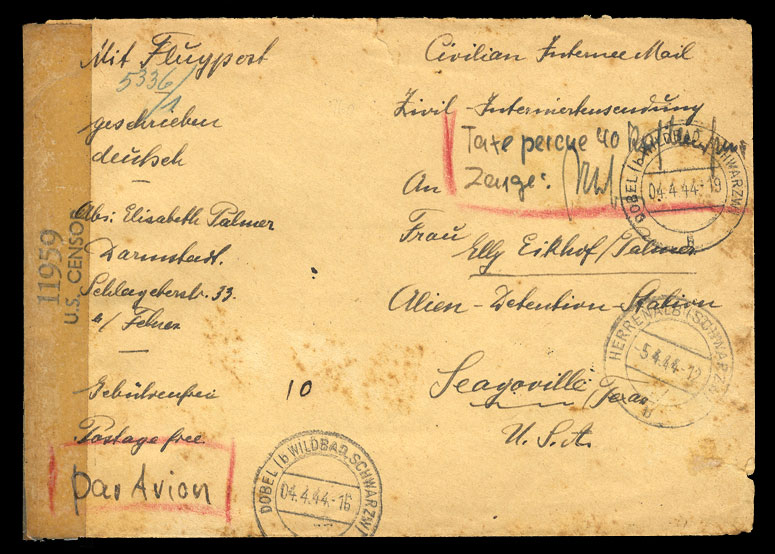 Mit Flugpost
5336/1
geschrieben
deutsch
Abs: Elisabeth Palmer
Darmstadt.
Schlageterstr. 33.
Gebührenfrei
10
Postage free
par Avion
11959
U.S. CENSOR
Civilian Internee Mail
Zivil-Interniertensendung
Taxe percue 40
Zeuge:
An
Frau
Elly Eikhof/Palmer
Alien-Detention-Station
Seagoville/Texas
U.S.A.
DOBEL (b WILDBAD, SCHWARZW)
04.4.44.-19
HERRENALB (SCHWARZW)
5.4.44.-12
DOBEL (b WILDBAD, SCHWARZW)
04.4.44.-16